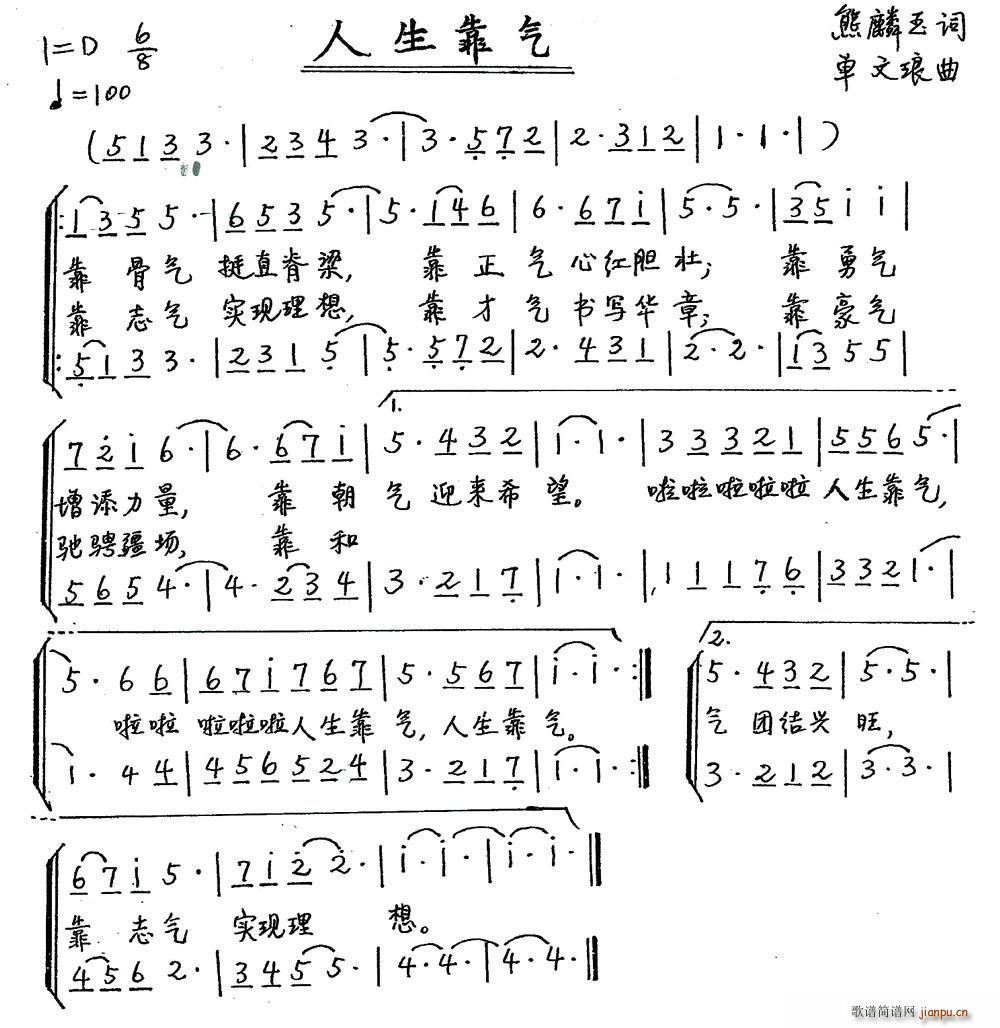 人生靠气
熊麟玉词
单文琅曲
1=D 6/8
♩=100
(5 1 3 3·|2 3 4 3·|3· 5 7 2|2· 3 1 2|1· 1·|)
1 3 5 5·|6 5 3 5·|5· 1 4 6|6· 6 7 i|5· 5·|3 5 i i|
靠骨气 挺直脊梁, 靠正气心红胆壮; 靠勇气
靠志气 实现理想, 靠才气书写华章; 靠豪气
5 1 3 3·|2 3 1 5·|5· 5 7 2|2· 4 3 1|2· 2·|1 3 5 5|
1.
7 2 i 6·|6· 6 7 i|5· 4 3 2|1· 1·|3 3 3 2 1|5 5 6 5·|
增添力量, 靠朝气迎来希望。 啦啦啦啦啦人生靠气,
驰骋疆场, 靠和
5 6 5 4·|4· 2 3 4|3· 2 1 7|1· 1·|1 1 1 7 6|3 3 2 1·|
2.
5· 6 6|6 7 i 7 6 7|5· 5 6 7|i· i·:‖ 5· 4 3 2|5· 5·|
啦啦 啦啦啦人生靠气,人生靠气。 气团结兴旺,
1· 4 4|4 5 6 5 2 4|3· 2 1 7|1· 1·:‖ 3· 2 1 2|3· 3·|
6 7 i 5·|7 i 2 2·|i· i·|i· i·‖
靠志气 实现理想。
4 5 6 2·|3 4 5 5·|4· 4·|4· 4·‖
歌谱简谱网 jianpu.cn